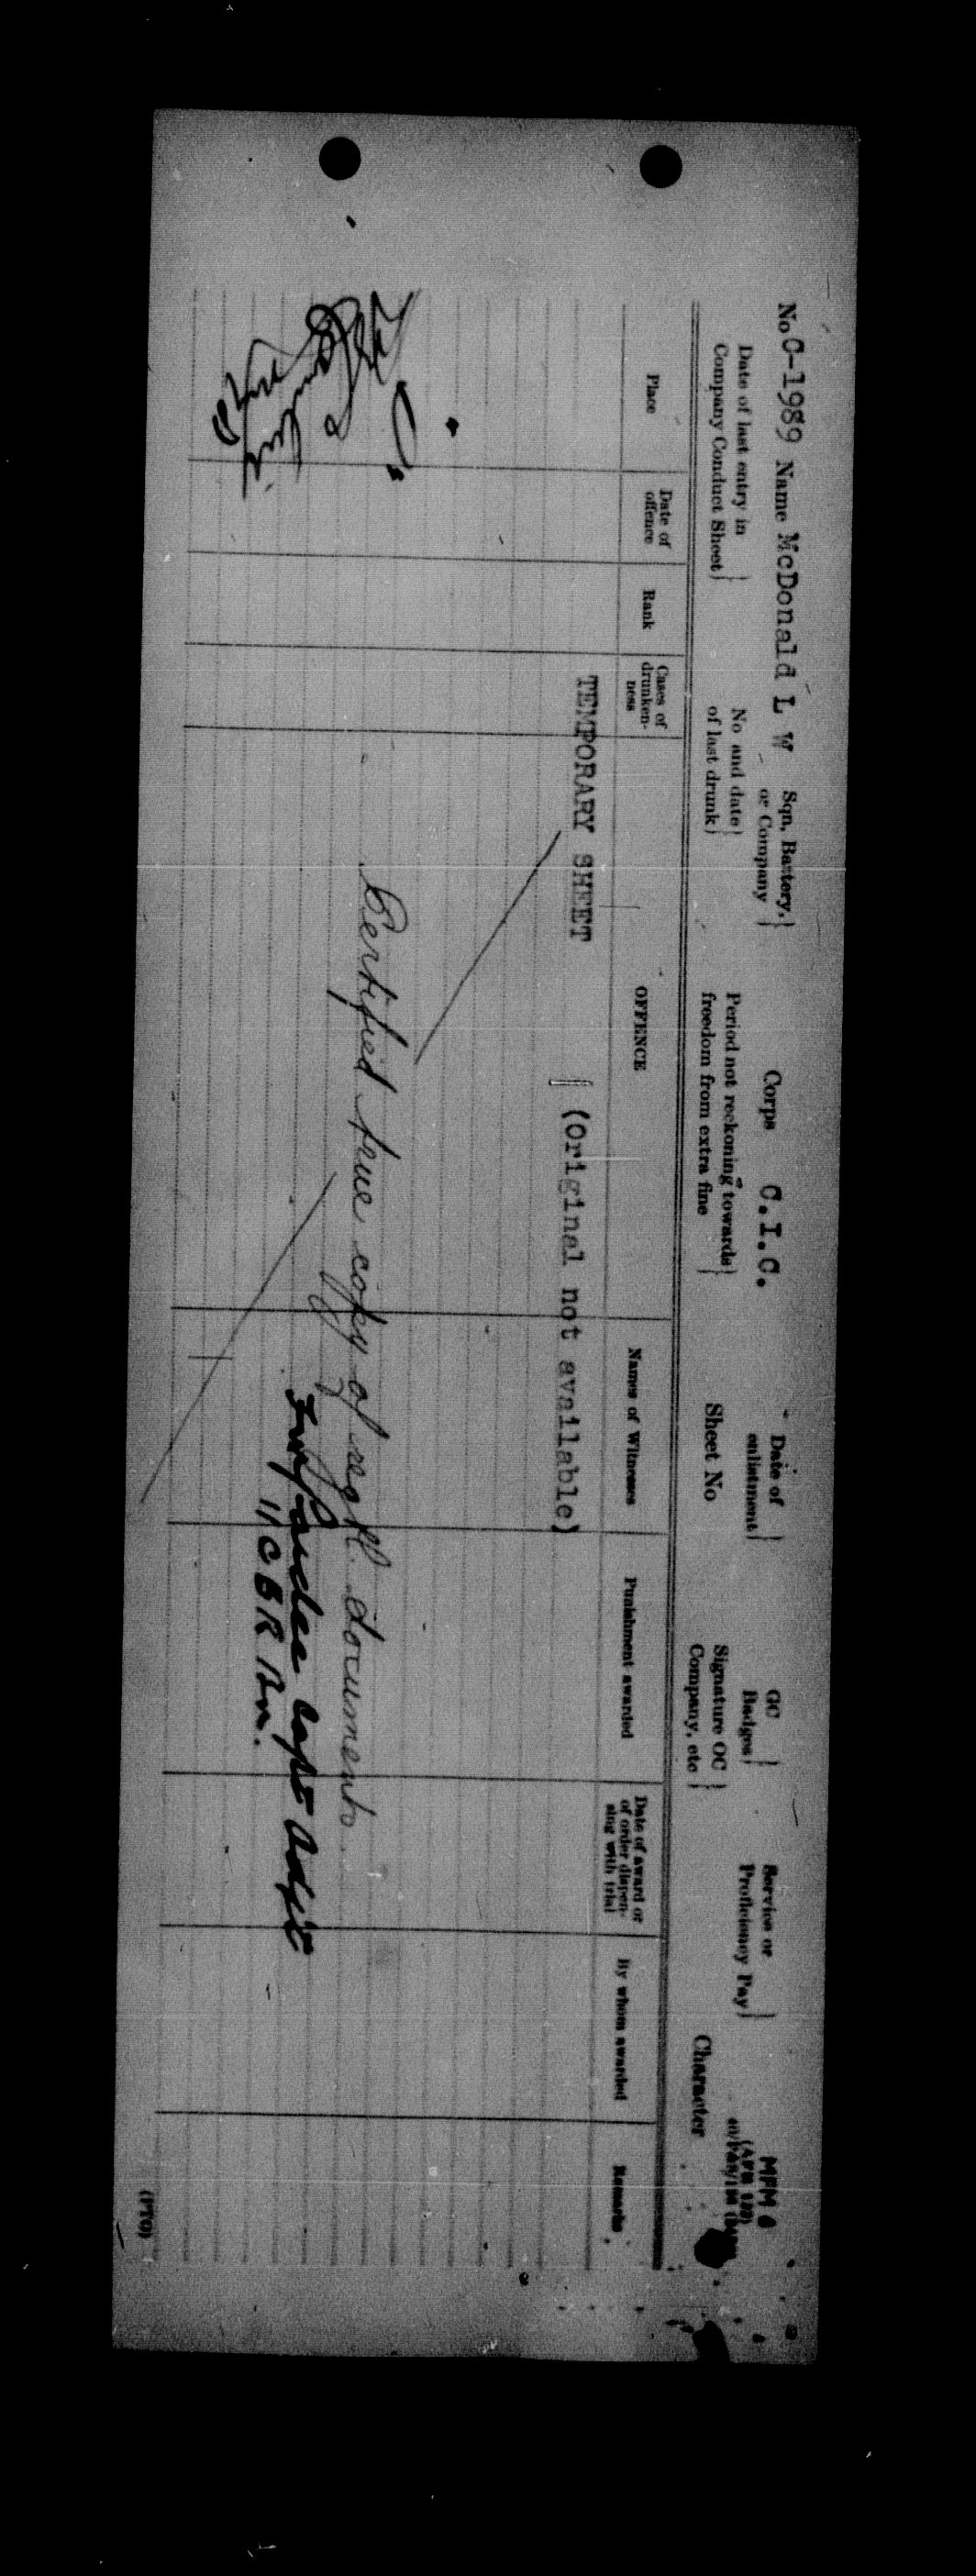 MFM 6
(AFB 122)
No C-1989 Name McDonald L W Sqn, Battery, or Company } Corps C.I.C. Date of enlistment } GC Badges } Service or Proficiency Pay }
Date of last entry in Company Conduct Sheet } No and date of last drunk } Period not reckoning towards freedom from extra fine } Sheet No Signature OC Company, etc } Character
Place Date of offence Rank Cases of drunken-ness OFFENCE Names of Witnesses Punishment awarded Date of award or of order dispen-sing with trial By whom awarded Remarks
TEMPORARY SHEET (Original not available)
Certified true copy of regtl. documents.
Capt Adjt
11 C B R Bn.
(PTO)